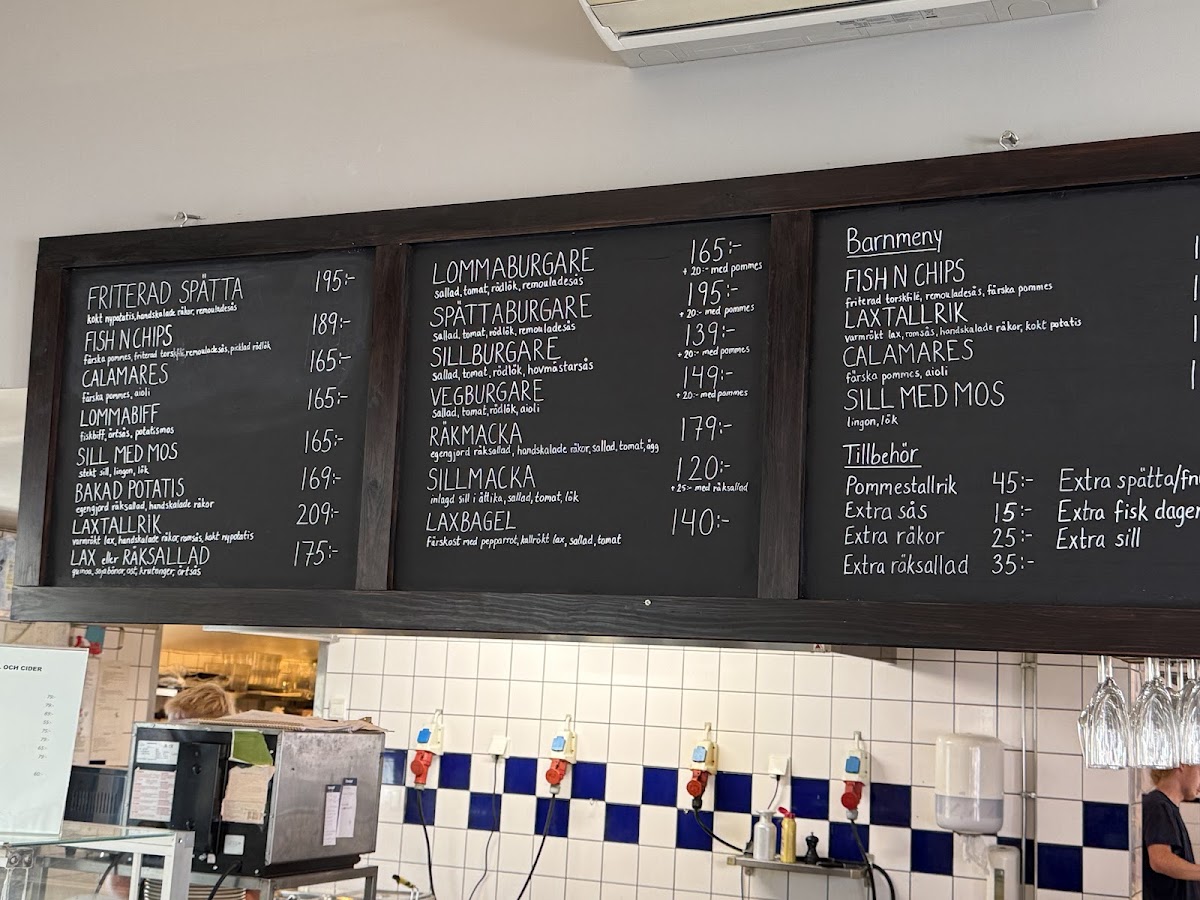 FRITERAD SPÄTTA 195:-
kokt nypotatis, handskalade räkor, remouladesås
FISH N CHIPS 189:-
färska pommes, friterad torskfilé, remouladesås, picklad rödlök
CALAMARES 165:-
färska pommes, aioli
LOMMABIFF 165:-
fiskbiff, örtsås, potatismos
SILL MED MOS 165:-
stekt sill, lingon, lök
BAKAD POTATIS 169:-
egengjord räksallad, handskalade räkor
LAXTALLRIK 209:-
varmrökt lax, handskalade räkor, romsås, kokt nypotatis
LAX eller RÄKSALLAD 175:-
quinoa, sojabönor, ost, krutonger, örtsås
LOMMABURGARE 165:-
sallad, tomat, rödlök, remouladesås + 20:- med pommes
SPÄTTABURGARE 195:-
sallad, tomat, rödlök, remouladesås + 20:- med pommes
SILLBURGARE 139:-
sallad, tomat, rödlök, hovmästarsås + 20:- med pommes
VEGBURGARE 149:-
sallad, tomat, rödlök, aioli + 20:- med pommes
RÄKMACKA 179:-
egengjord räksallad, handskalade räkor, sallad, tomat, ägg
SILLMACKA 120:-
inlagd sill i ättika, sallad, tomat, lök + 25:- med räksallad
LAXBAGEL 140:-
Färskost med pepparrot, kallrökt lax, sallad, tomat
Barnmeny
FISH N CHIPS
friterad torskfilé, remouladesås, färska pommes
LAXTALLRIK
varmrökt lax, romsås, handskalade räkor, kokt potatis
CALAMARES
färska pommes, aioli
SILL MED MOS
lingon, lök
Tillbehör
Pommestallrik 45:- Extra spätta/
Extra sås 15:- Extra fisk dagen
Extra räkor 25:- Extra sill
Extra räksallad 35:-
OCH CIDER